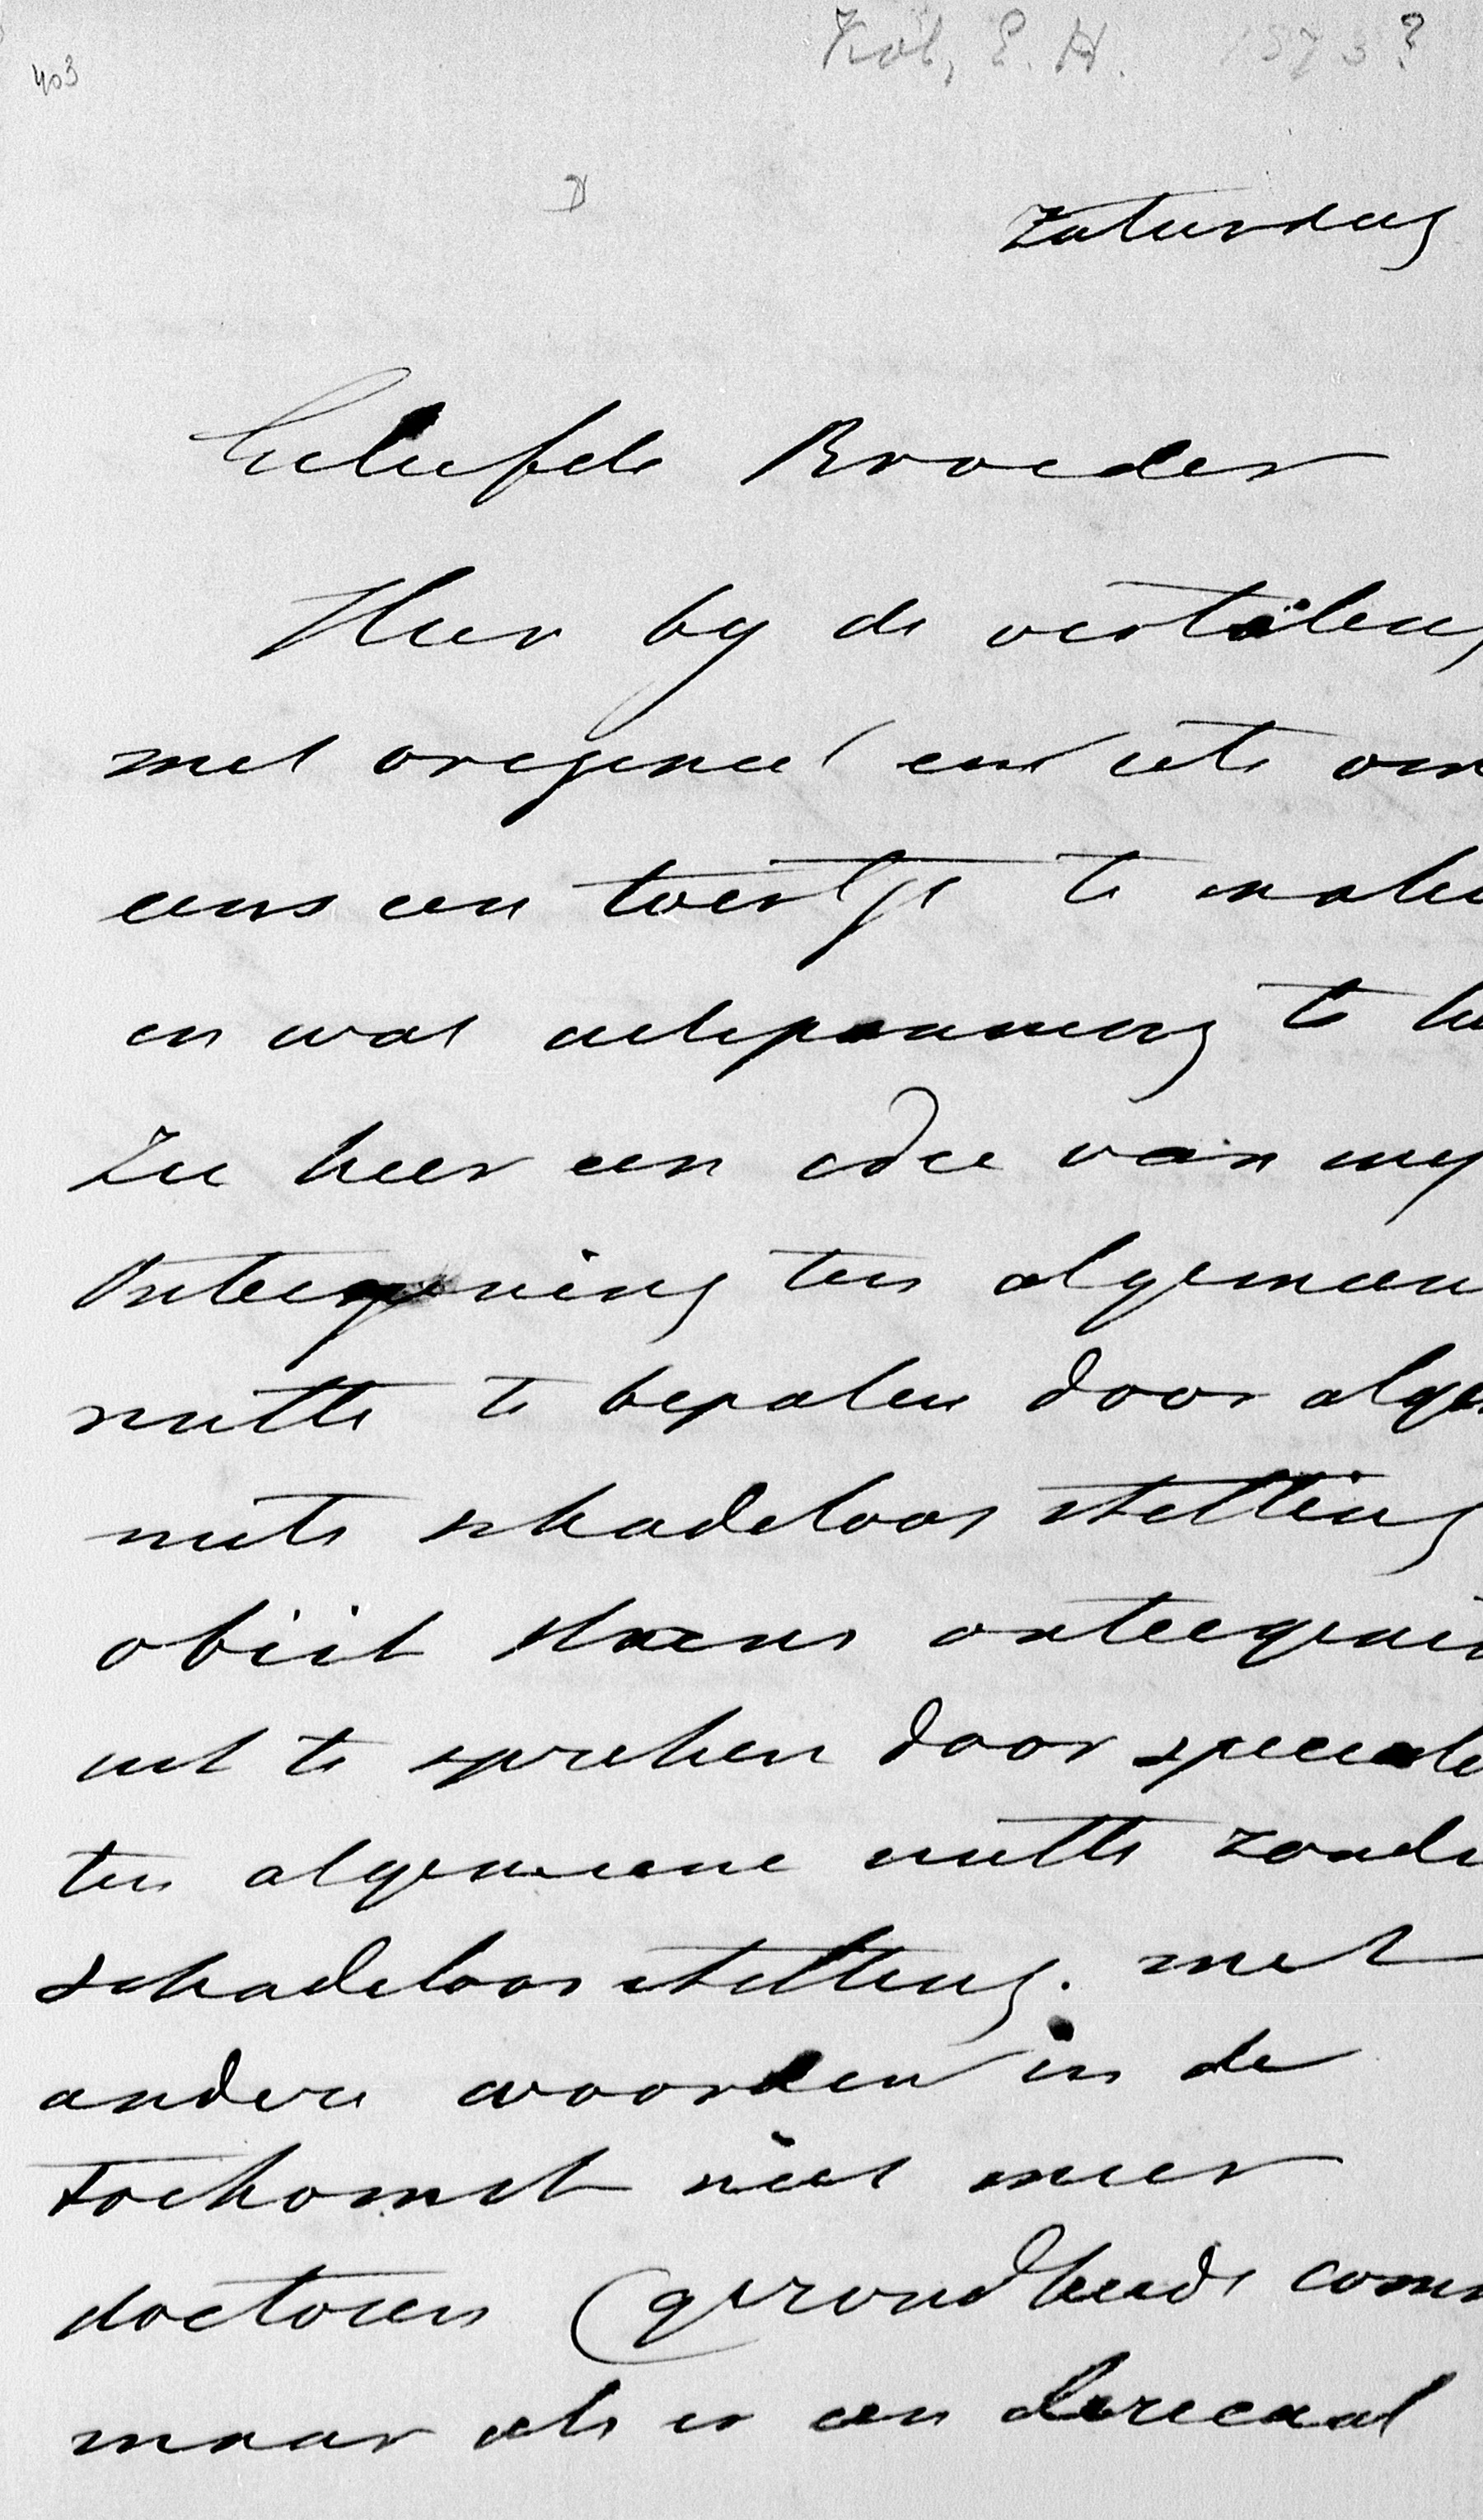 403
Kol, E. H. 1873?
Zaturdag
Geliefde Broeder
Hier by de vertaling
met origeneel en iets om
eens een toertje te
en wat uitspanning te
Zie hier een idee van my
Onteigening ten algemeen
nutte te bepalen door
mits schadeloosstelling
objict
uit te spreken door
ten algemeene nutte
schadeloosstelling. met
andere woorden in de
toekomst niet meer
doctoren (gezondheids
maar als er een clericaal